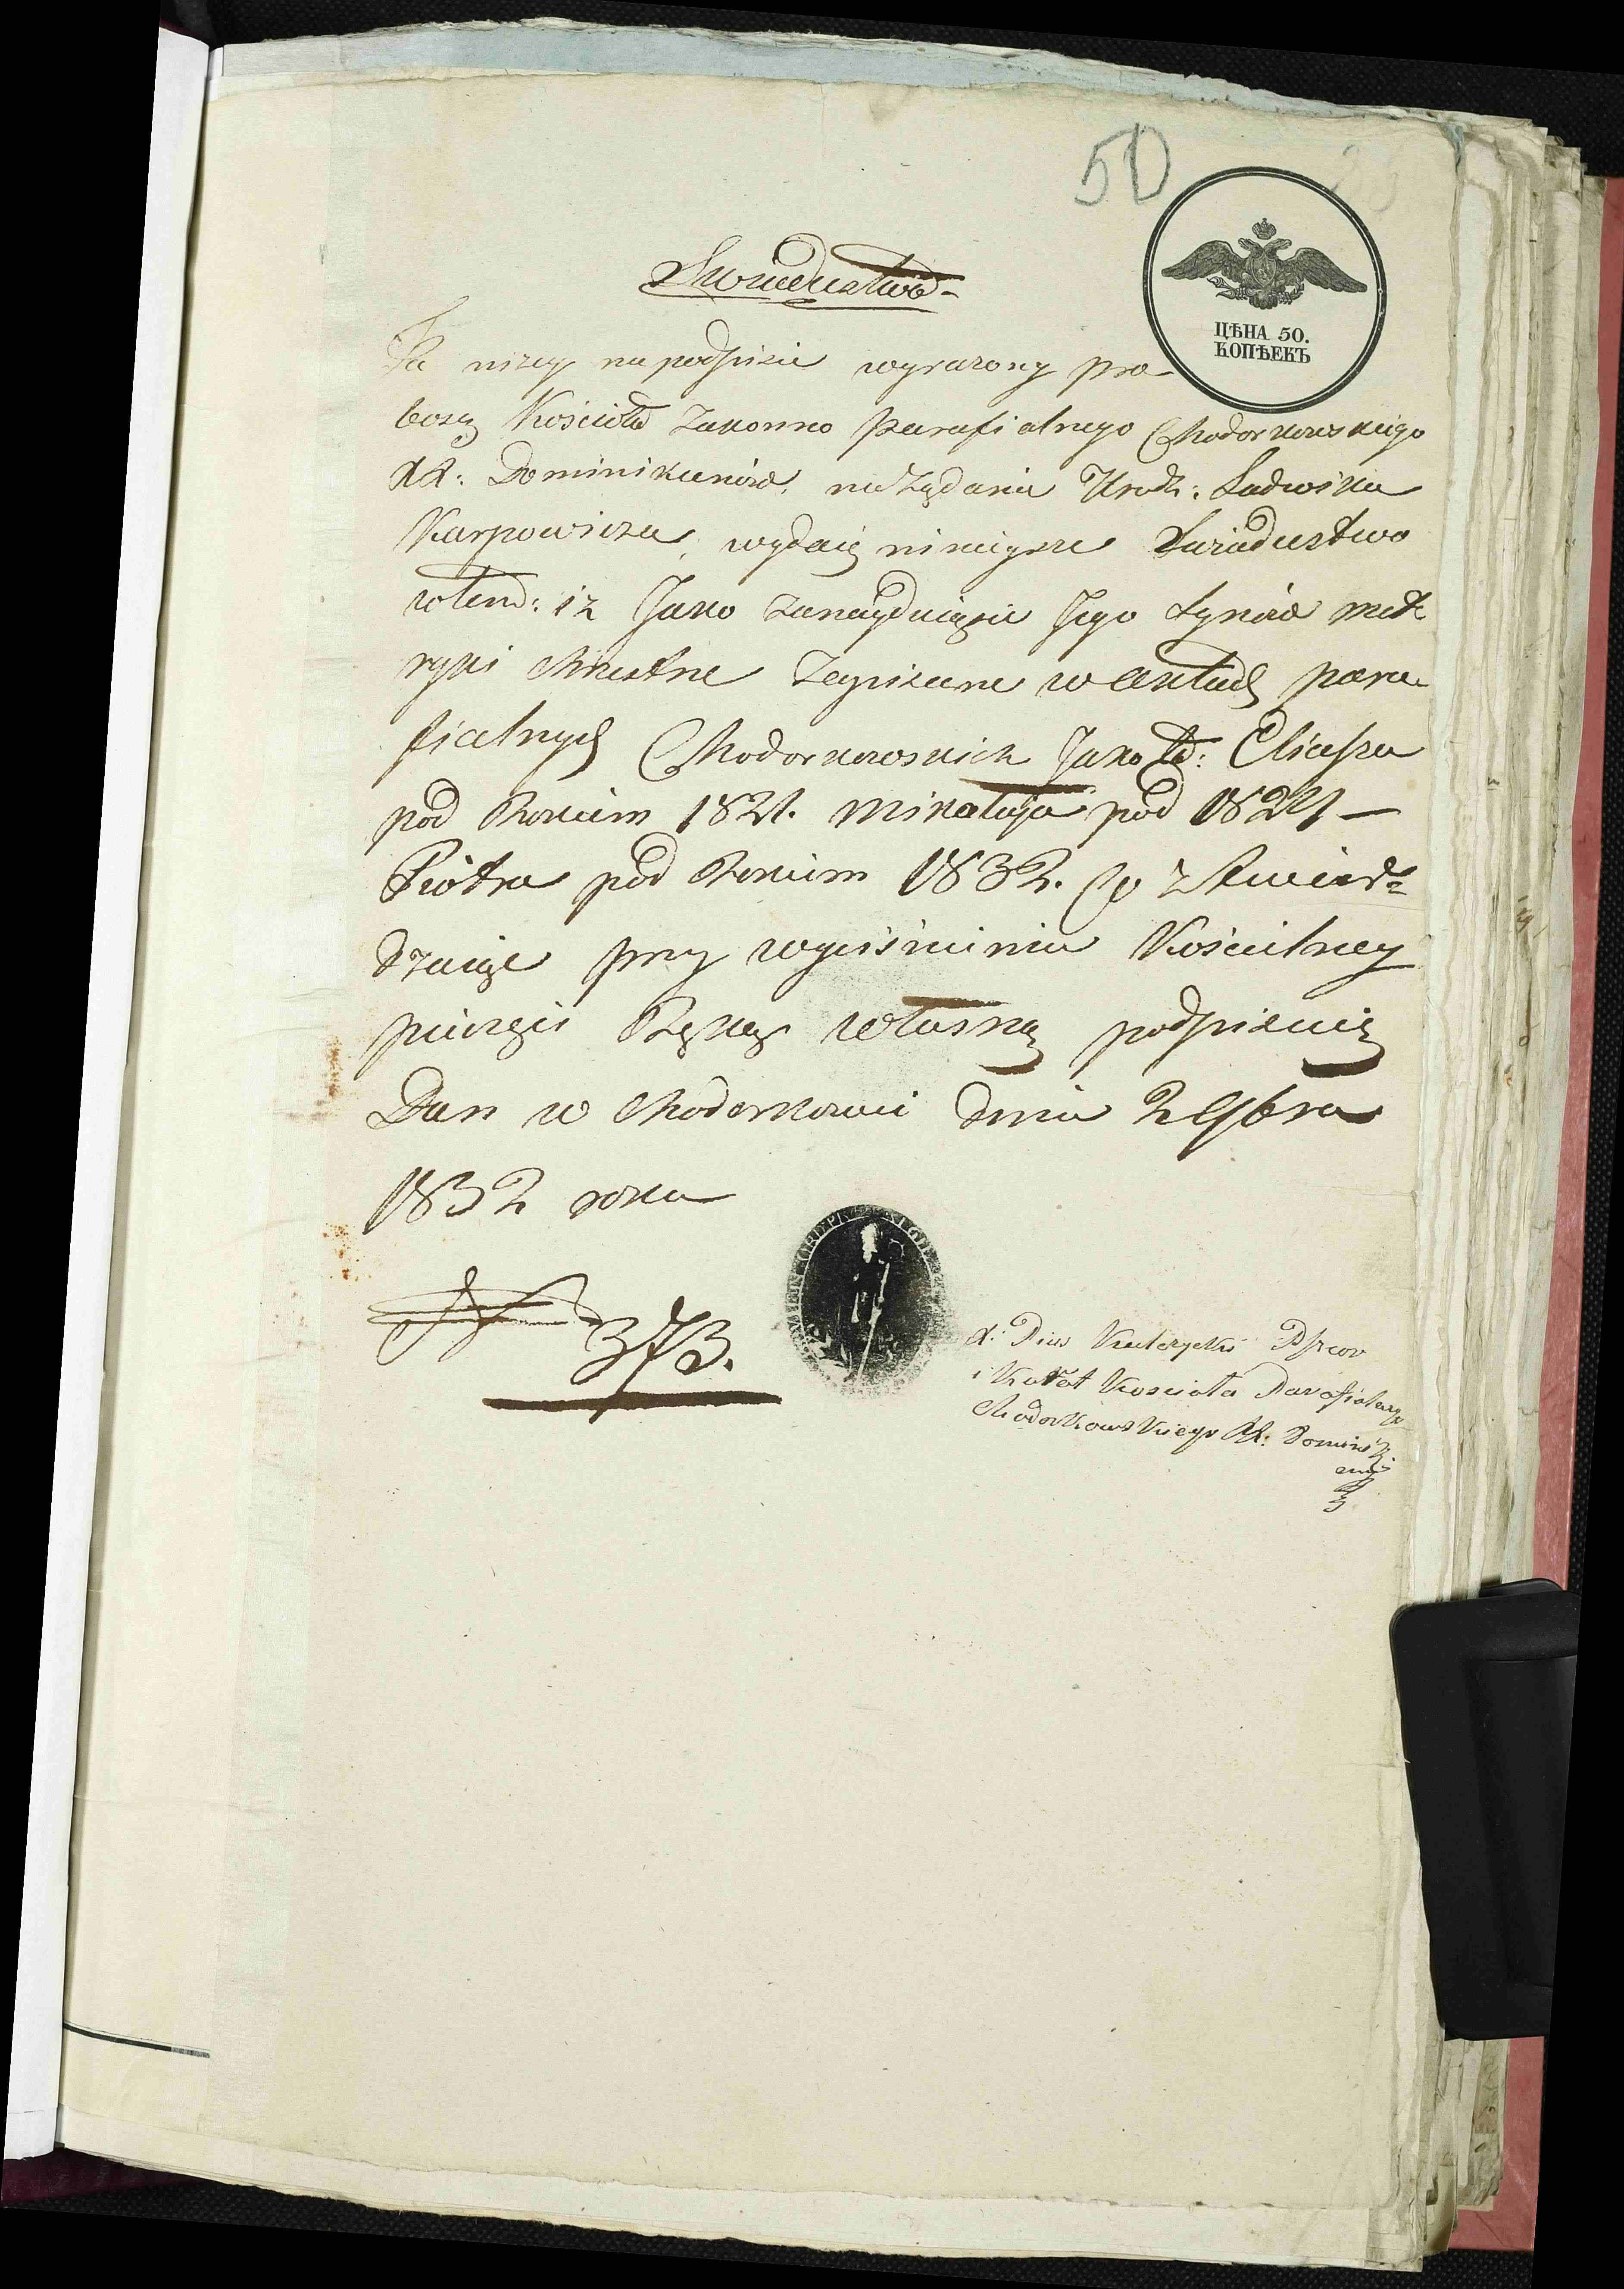 50
Swiadectwo
ЦѢНА 50.
КОПѢЕКЪ
Ja niżey na podpisie wyrażony pro-
boszcz Kościoła Zakonno Parafialnego Chodorkowskiego
XX: Dominikanów, na żądanie Urodz: Ludwika
Karpowicza, wydaię ninieysze Swiadectwo
w tem: iż Jako znayduią sie Jego Synów met-
ryki chrestne zapisane w aktach para-
fialnych Chodorkowskich Jako to: Eliasza
pod Rokiem 1821. Mikołaja pod 1824 —
Piotra pod Rokiem 1832. Co ztwier-
dzaiąc przy wyciśnieniu Kościelney
pieczęci Ręką własną podpisuię
Dan w Chodorkowie dnia 2 9bra
1832 roku
N 373.
X: Pius Przeor
i Kurat Kosciola Parafialnego
Chodorkowskiego XX: Dominik